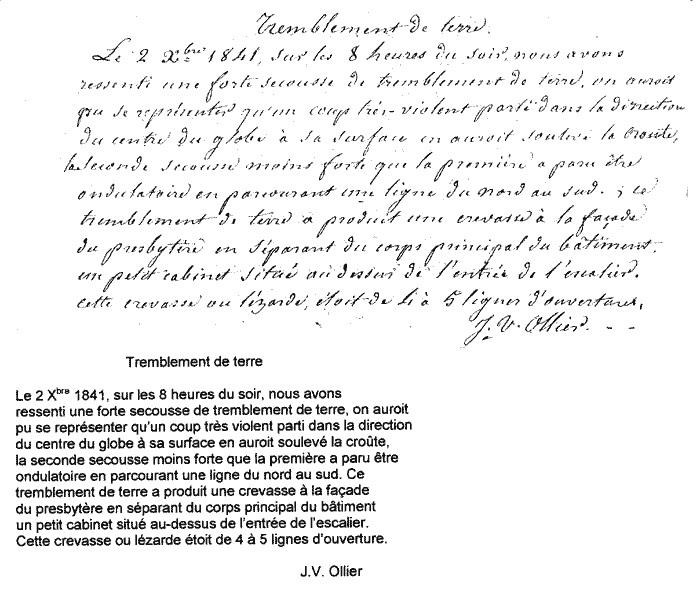 Tremblement de terre.
Le 2 Xbre 1841, sur les 8 heures du soir, nous avons
ressenti une forte secousse de tremblement de terre, on auroit
pu se représenter qu'un coup très-violent parti dans la direction
du centre du globe à sa surface en auroit soulevé la croute,
la seconde secousse moins forte que la première a paru être
ondulatoire en parcourant une ligne du nord au sud. ; ce
tremblement de terre a produit une crevasse à la façade
du presbytère en séparant du corps principal du bâtiment,
un petit cabinet situé au dessus de l'entrée de l'escalier.
Cette crevasse ou lézarde, étoit de 4 à 5 lignes d'ouverture.
J. V. Ollier. - -
Tremblement de terre
Le 2 Xbre 1841, sur les 8 heures du soir, nous avons
ressenti une forte secousse de tremblement de terre, on auroit
pu se représenter qu'un coup très violent parti dans la direction
du centre du globe à sa surface en auroit soulevé la croûte,
la seconde secousse moins forte que la première a paru être
ondulatoire en parcourant une ligne du nord au sud. Ce
tremblement de terre a produit une crevasse à la façade
du presbytère en séparant du corps principal du bâtiment
un petit cabinet situé au-dessus de l'entrée de l'escalier.
Cette crevasse ou lézarde étoit de 4 à 5 lignes d'ouverture.
J.V. Ollier